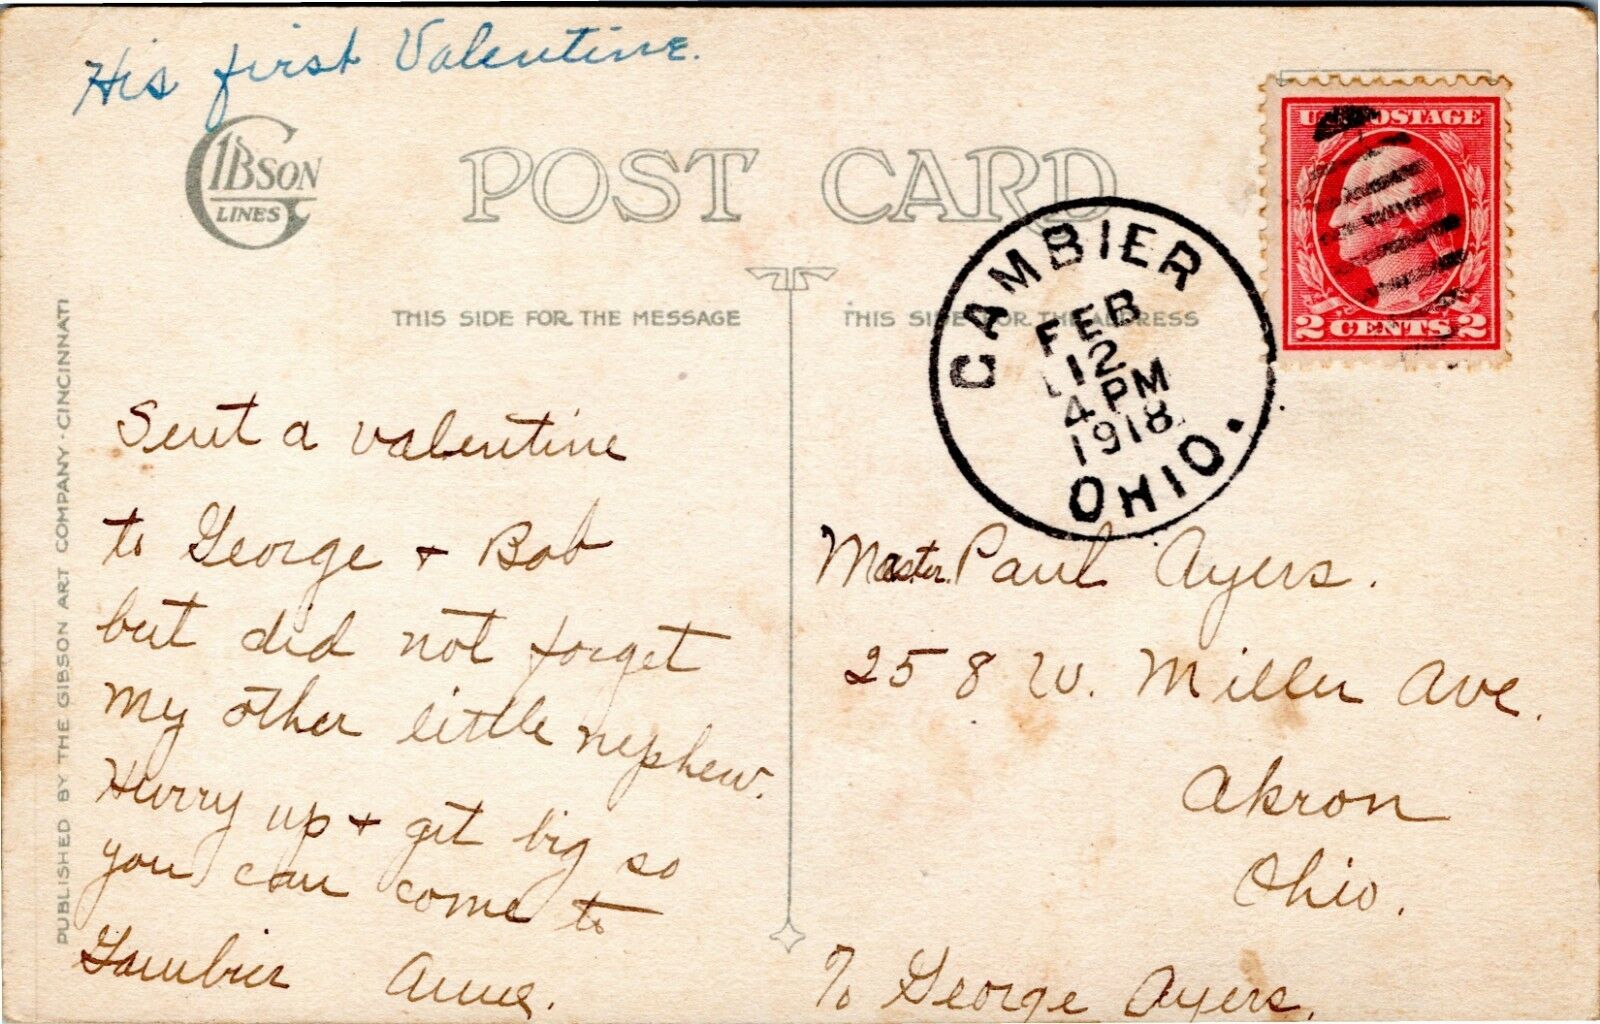 His first Valentine.
GIBSON
LINES
POST CARD
U.S. POSTAGE
2 CENTS 2
GAMBIER
FEB
12
4 PM
1918
OHIO.
THIS SIDE FOR THE MESSAGE
THIS SIDE FOR THE ADDRESS
PUBLISHED BY THE GIBSON ART COMPANY · CINCINNATI
Sent a valentine
to George + Bob
but did not forget
my other little nephew.
Hurry up + get big so
you can come to
Gambier Anne.
Master. Paul Ayers.
258 W. Miller Ave.
Akron
Ohio.
% George Ayers.